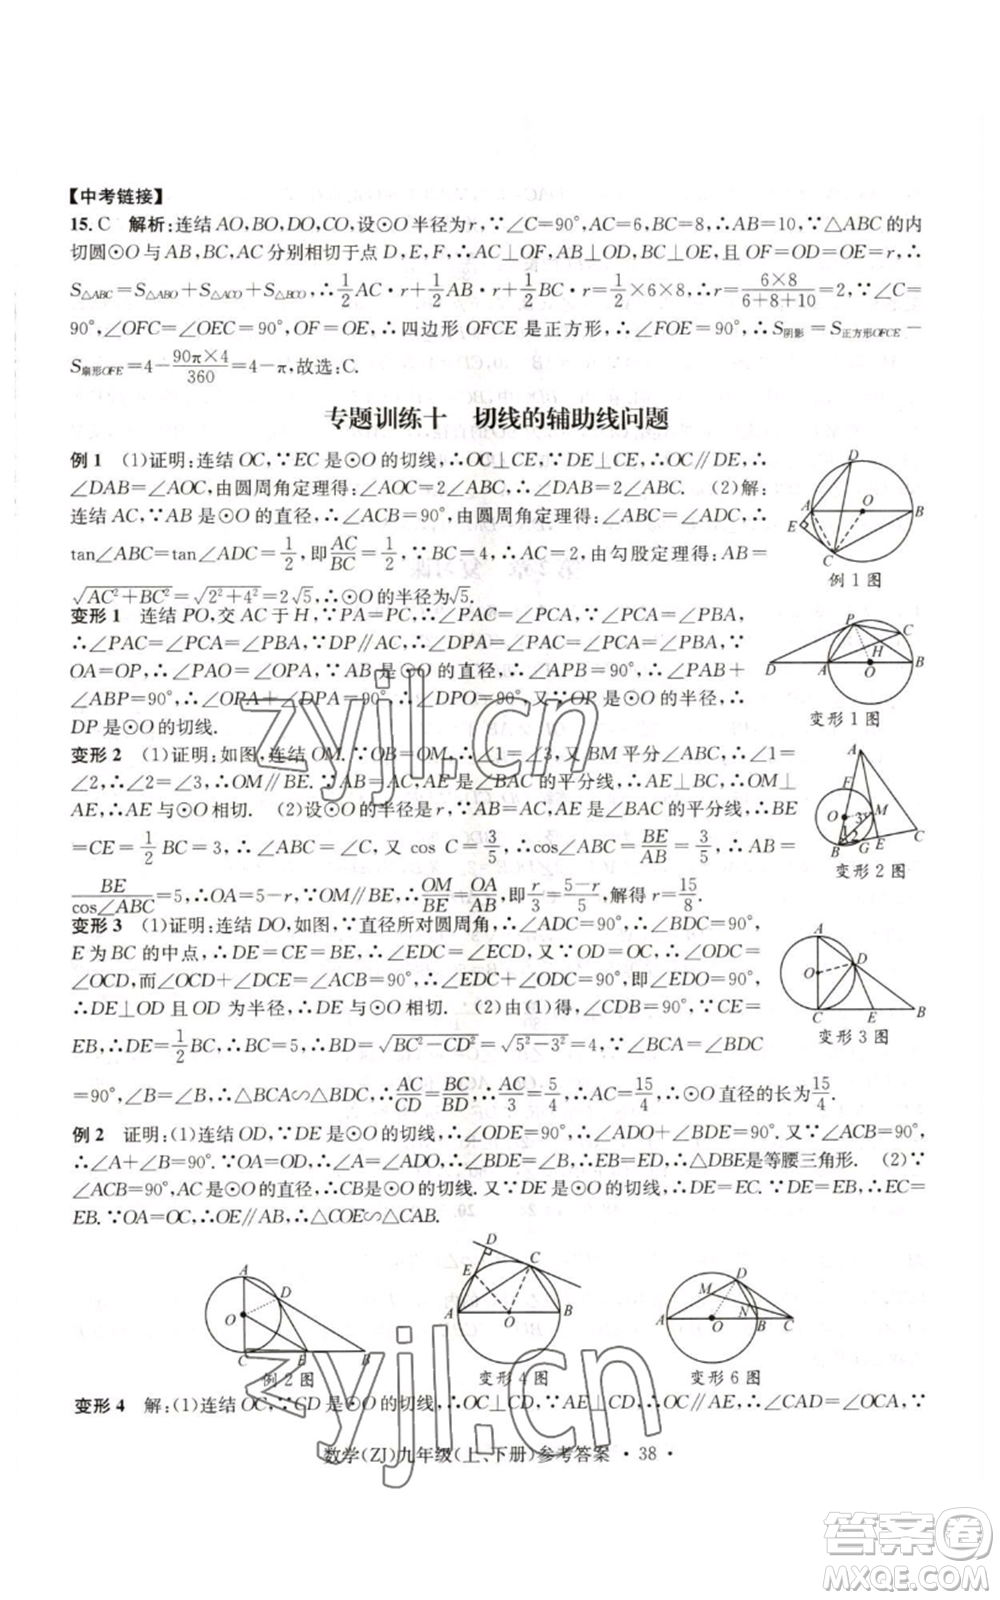 【中考链接】
15. C 解析:连结 AO,BO,DO,CO,设⊙O 半径为 r,∵∠C=90°,AC=6,BC=8,∴AB=10,∵△ABC 的内
切圆⊙O 与 AB,BC,AC 分别相切于点 D,E,F,∴AC⊥OF,AB⊥OD,BC⊥OE,且 OF=OD=OE=r,∴
S△ABC=S△ABO+S△ACO+S△BCO,∴1/2 AC·r+1/2 AB·r+1/2 BC·r=1/2×6×8,∴r=(6×8)/(6+8+10)=2,∵∠C=
90°,∠OFC=∠OEC=90°,OF=OE,∴四边形 OFCE 是正方形,∴∠FOE=90°,∴S阴影=S正方形OFCE-
S扇形OFE=4-(90π×4)/360=4-π,故选:C.
专题训练十 切线的辅助线问题
例 1 (1)证明:连结 OC,∵EC 是⊙O 的切线,∴OC⊥CE,∵DE⊥CE,∴OC∥DE,∴
∠DAB=∠AOC,由圆周角定理得:∠AOC=2∠ABC,∴∠DAB=2∠ABC. (2)解:
连结 AC,∵AB 是⊙O 的直径,∴∠ACB=90°,由圆周角定理得:∠ABC=∠ADC,∴
tan∠ABC=tan∠ADC=1/2,即AC/BC=1/2,∵BC=4,∴AC=2,由勾股定理得:AB=
√(AC²+BC²)=√(2²+4²)=2√5,∴⊙O 的半径为√5.
例 1 图
变形 1 连结 PO,交 AC 于 H,∵PA=PC,∴∠PAC=∠PCA,∵∠PCA=∠PBA,
∴∠PAC=∠PCA=∠PBA,∵DP∥AC,∴∠DPA=∠PAC,∴∠DPA=∠PBA,∵
OA=OP,∴∠PAO=∠OPA,∵AB 是⊙O 的直径,∴∠APB=90°,∴∠PAB+
∠ABP=90°,∴∠OPA+∠DPA=90°,∴∠DPO=90°,又∵OP 是⊙O 的半径,∴
DP 是⊙O 的切线.
变形 1 图
变形 2 (1)证明:如图,连结 OM.∵OB=OM,∴∠1=∠3,又 BM 平分∠ABC,∴∠1=
∠2,∴∠2=∠3,∴OM∥BE.∵AB=AC,AE 是∠BAC 的平分线,∴AE⊥BC,∴OM⊥
AE,∴AE 与⊙O 相切. (2)设⊙O 的半径是 r,∵AB=AC,AE 是∠BAC 的平分线,∴BE
=CE=1/2 BC=3,∴∠ABC=∠C,又 cos C=3/5,∴cos∠ABC=BE/AB=3/5,∴AB=
BE/cos∠ABC=5,∴OA=5-r,∵OM∥BE,∴OM/BE=OA/AB,即r/3=(5-r)/5,解得 r=15/8.
变形 2 图
变形 3 (1)证明:连结 DO,如图,∵直径所对圆周角,∴∠ADC=90°,∴∠CDB=90°,
E 为 BC 的中点,∴DE=CE=BE,∴∠EDC=∠ECD,又∵OD=OC,∴∠ODC=
∠OCD,而∠OCD+∠DCE=∠ACB=90°,∴∠EDC+∠ODC=90°,即∠EDO=90°,
∴DE⊥OD 且 OD 为半径,∴DE与⊙O 相切. (2)由(1)得,∠CDB=90°,∵CE=
EB,∴DE=1/2 BC,∴BC=5,∴BD=√(BC²-CD²)=√(5²-3²)=4,∵∠BCA=∠BDC
=90°,∠B=∠B,∴△BCA∽△BDC,∴AC/CD=BC/BD,∴AC/3=5/4,∴AC=15/4,∴⊙O 直径的长为15/4.
变形 3 图
例 2 证明:(1)连结 OD,∵DE 是⊙O 的切线,∴∠ODE=90°,∴∠ADO+∠BDE=90°.又∵∠ACB=90°,
∴∠A+∠B=90°.∵OA=OD,∴∠A=∠ADO,∴∠BDE=∠B,∴EB=ED,∴△DBE是等腰三角形. (2)∵
∠ACB=90°,AC是⊙O 的直径,∴CB是⊙O 的切线.∵DE是⊙O 的切线,∴DE=EC.∵DE=EB,∴EC=
EB.∵OA=OC,∴OE∥AB,∴△COE∽△CAB.
例 2 图
变形 4 图
变形 6 图
变形 4 解:(1)连结 OC,∵CD 是⊙O 的切线,∴OC⊥CD,∵AE⊥CD,∴OC∥AE,∴∠EAC=∠OCA,∵
数学(ZJ)九年级(上、下册)参考答案 · 38 ·
zyjl.cn
zyjl.cn
答案圈
MXQE.COM